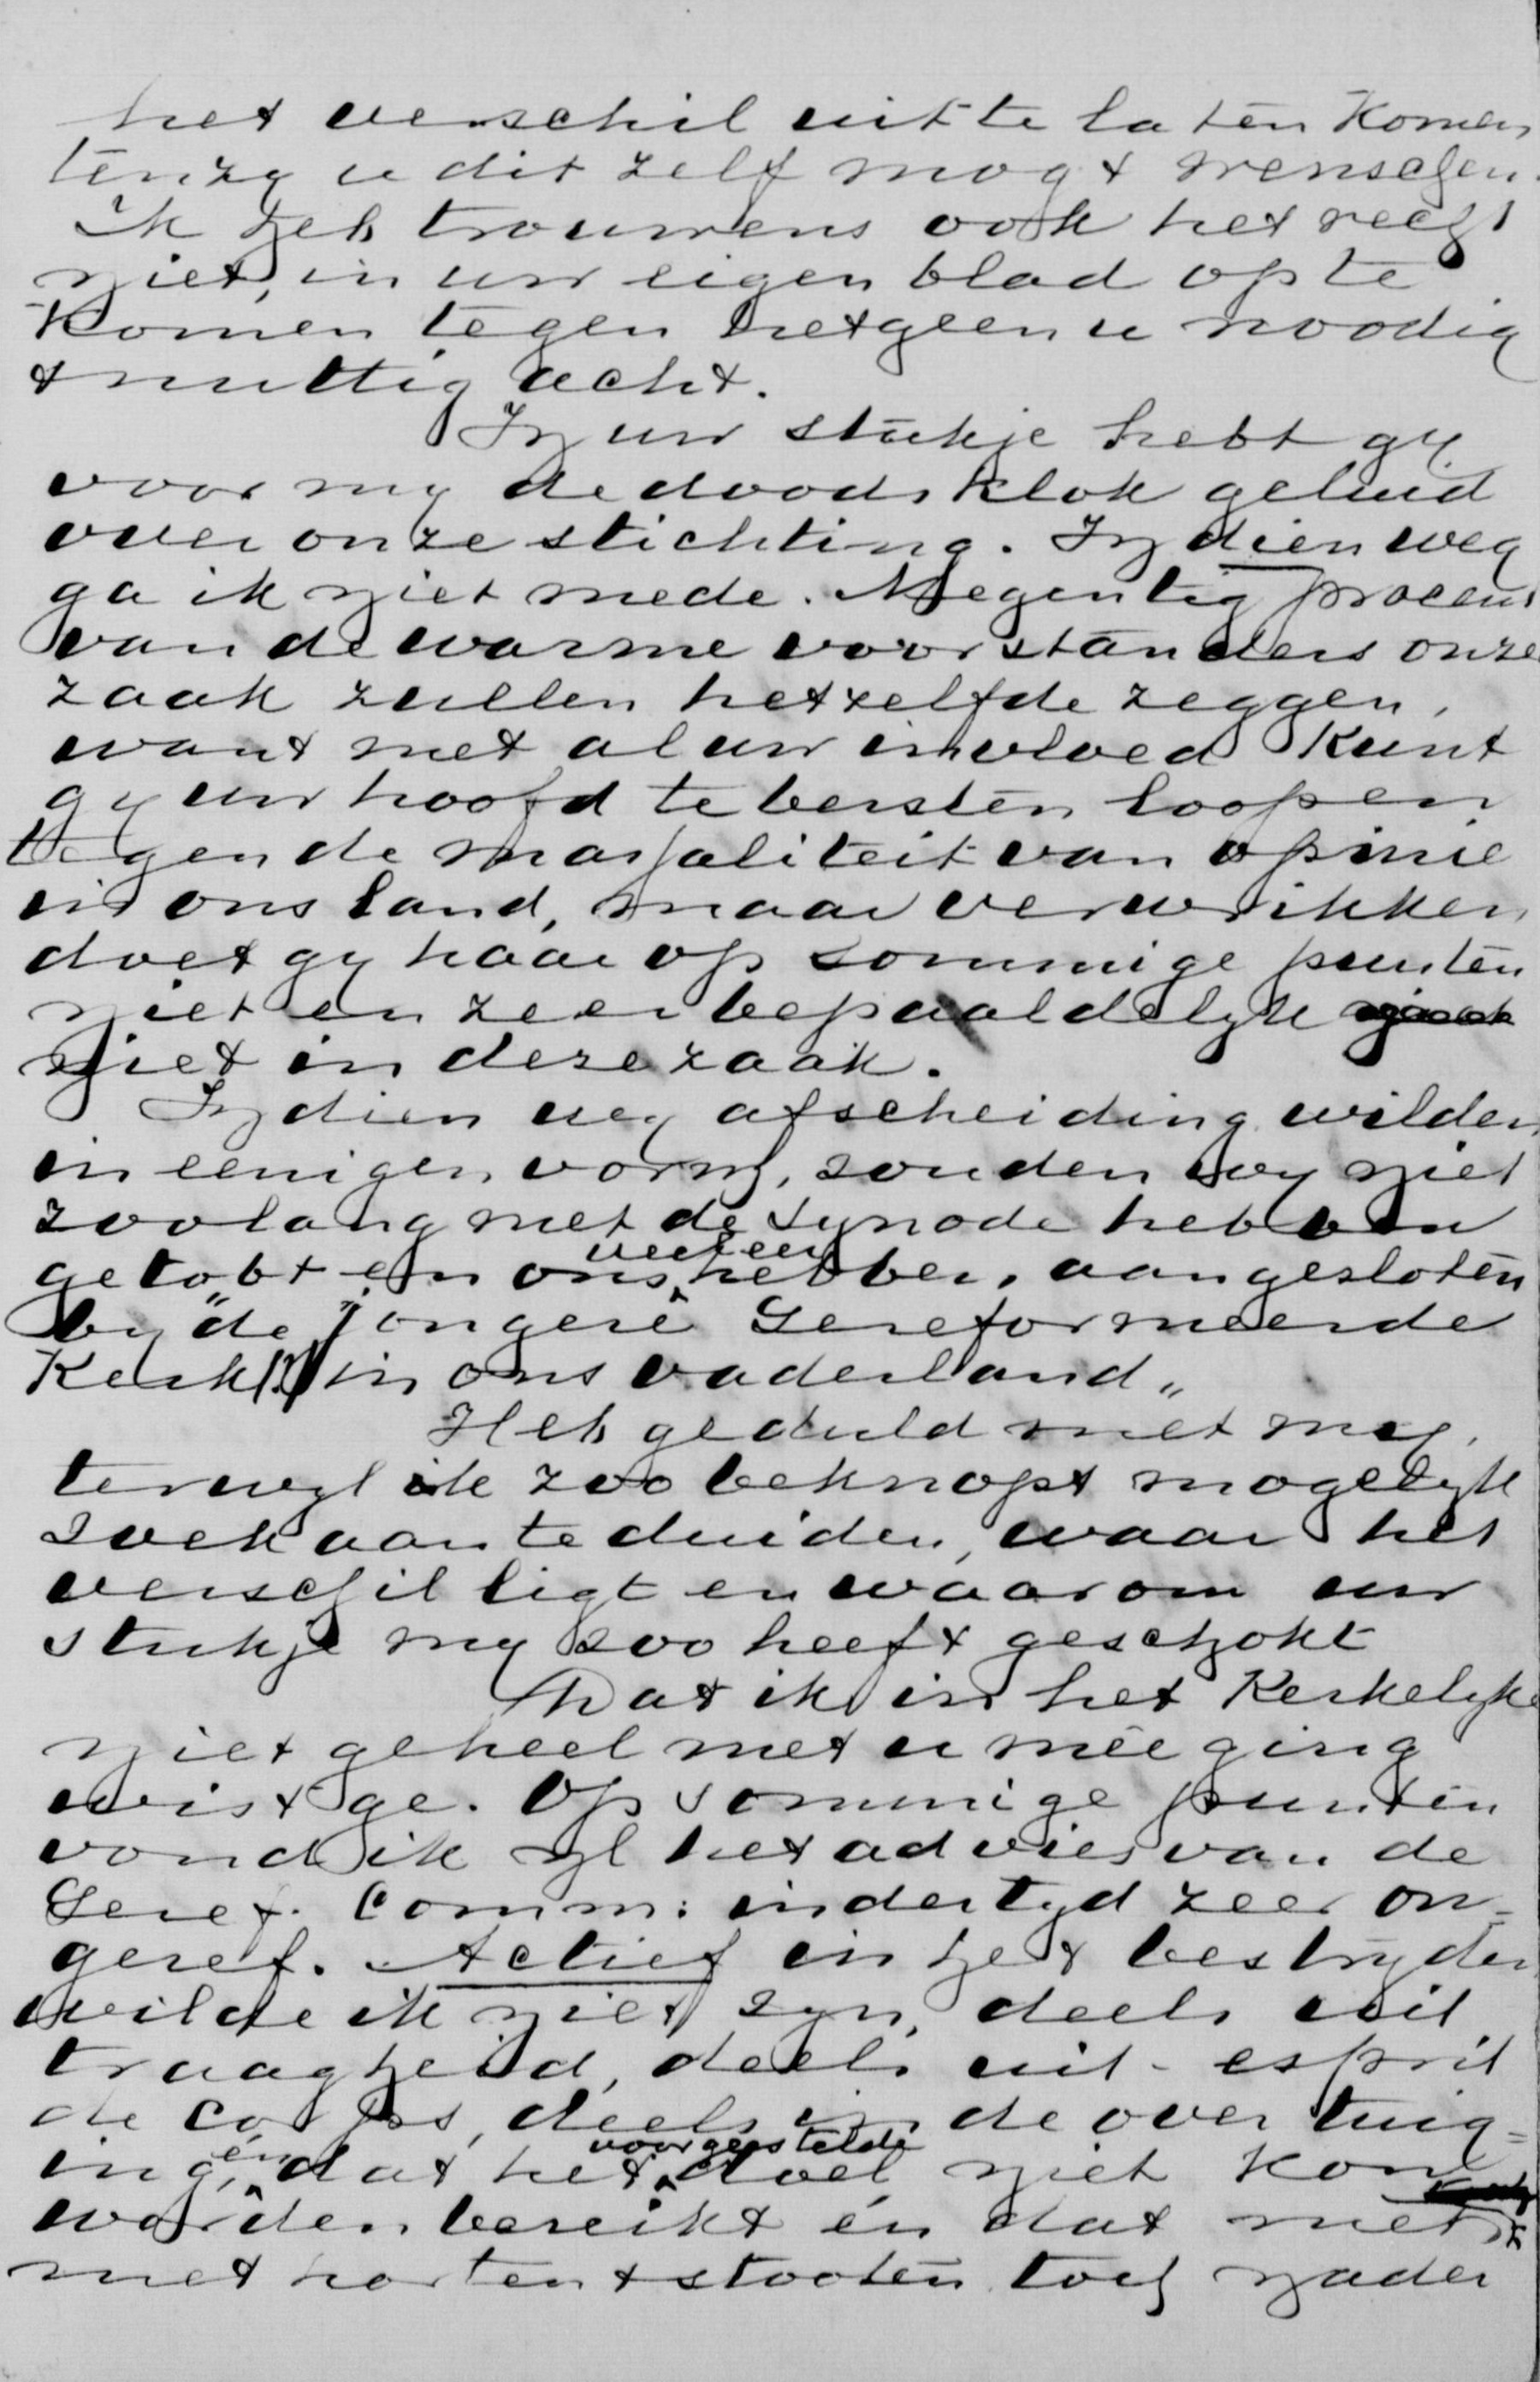 het verschil uit te laten komen
tenzy u dit zelf mogt wenschen.
Ik heb trouwens ook het regt
niet, in uw eigen blad op te
komen tegen hetgeen u noodig
& nuttig acht.
In uw stukje hebt gy
voor my de doodsklok geluid
over onze stichting. In dien weg
ga ik niet mede. Negentig procent
van de warme voorstanders onze
zaak zullen hetzelfde zeggen,
want met al uw invloed kunt
gy uw hoofd te bersten loopen
tegen de majjaliteit van opinie
in ons land, maar verwrikken
doet gy haar op sommige punten
niet en zeer bepaaldelyk
niet in deze zaak.
Indien wy afscheiding wilden
in eenigen vorm, zouden wy niet
zoolang met de Synode hebben
getobt en ons veeleer hebben aangesloten
by "de jongere Gereformeerde
Kerk(!) in ons vaderland"
Heb geduld met my,
terwyl ik zoo beknopt mogelyk
zoek aan te duiden, waar het
verschil ligt en waarom uw
stukje my zoo heeft geschokt
Dat ik in het Kerkelyke
niet geheel met u mêe ging
wist ge. Op sommige punten
vond ik zl het advies van de
Geref. Comm: indertyd zeer on-
geref. Actief in het bestryden
wilde ik niet zyn, deels uit
traagheid, deels uit esprit
de corps, deels in de overtuig=
ing, én dat het voorgestelde doel niet kon
worden bereikt én dat men
met horten & stooten toch nader